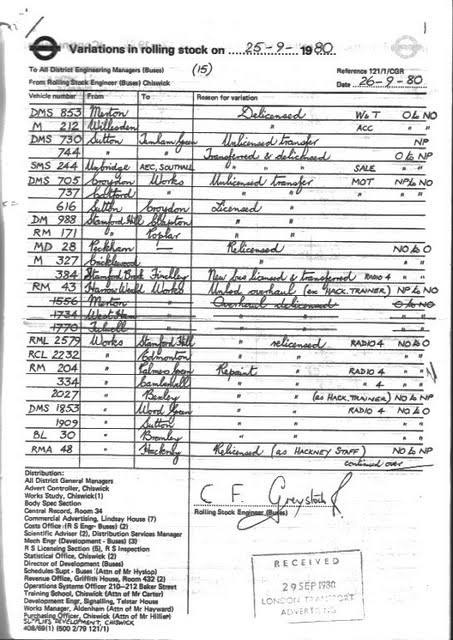 Variations in rolling stock on 25-9-1980
To All District Engineering Managers (Buses) (15) Reference 121/1/CGR
From Rolling Stock Engineer (Buses) Chiswick Date 26-9-80
Vehicle number From To Reason for variation
DMS 853 Merton Delicensed W&T O to NO
M 212 Willesden " ACC " "
DMS 730 Sutton Turnham Green Unlicensed transfer NP
744 " " Transferred & delicensed O to NP
SMS 244 Uxbridge AEC, SOUTHALL " " SALE " "
DMS 705 Croydon Works Unlicensed transfer MOT NP to NO
737 Catford " " " " "
616 Sutton Croydon Licensed " " "
DM 988 Stamford Hill Clapton " " "
RM 171 " Poplar " " "
MD 28 Peckham Relicensed NO to O
M 327 Cricklewood " " "
384 Stamford Brook Finchley New bus licensed & transferred RADIO 4 " "
RM 43 Harrow Weald Works Unlicd overhaul (ex HACK. TRAINER) NP to NO
1556 Merton " Overhaul delicensed O to NO
1734 West Ham " " " "
1770 Fulwell " " " "
RML 2579 Works Stamford Hill " relicensed RADIO 4 NO to O
RCL 2232 " Edmonton " " " "
RM 204 " Palmers Green Repaint " RADIO 4 " "
334 " Camberwell " " " 4 " "
2027 " Bexley " " (as HACK. TRAINER) NO to NP
DMS 1853 " Wood Green " " RADIO 4 NO to O
1909 " Sutton " " " "
BL 30 " Bromley " " " "
RMA 48 " Hackney Relicensed (as HACKNEY STAFF) NO to NP
continued over
Distribution:
All District General Managers
Advert Controller, Chiswick
Works Study, Chiswick(1)
Body Spec Section
Central Record, Room 34
Commercial Advertising, Lindsay House (7)
Costs Office (R S Engr- Buses) (2)
Scientific Adviser (2), Distribution Services Manager
Mech Engr (Development - Buses) (3)
R S Licensing Section (5), R S Inspection
Statistical Office, Chiswick (2)
Director of Development (Buses)
Schedules Supt - Buses (Attn of Mr Hyslop)
Revenue Office, Griffith House, Room 432 (2)
Operations Systems Officer 210-212 Baker Street
Training School, Chiswick (Attn of Mr Carter)
Development Engr, Signalling, Telstar House
Works Manager, Aldenham (Attn of Mr Hayward)
Purchasing Officer, Chiswick (Attn of Mr Hillier)
SUPPLIES DEVELOPMENT, CHISWICK
408/69(1) (500 2/79 121/1)
C F Greystock
Rolling Stock Engineer (Buses)
RECEIVED
29 SEP 1980
LONDON TRANSPORT
ADVERTISING